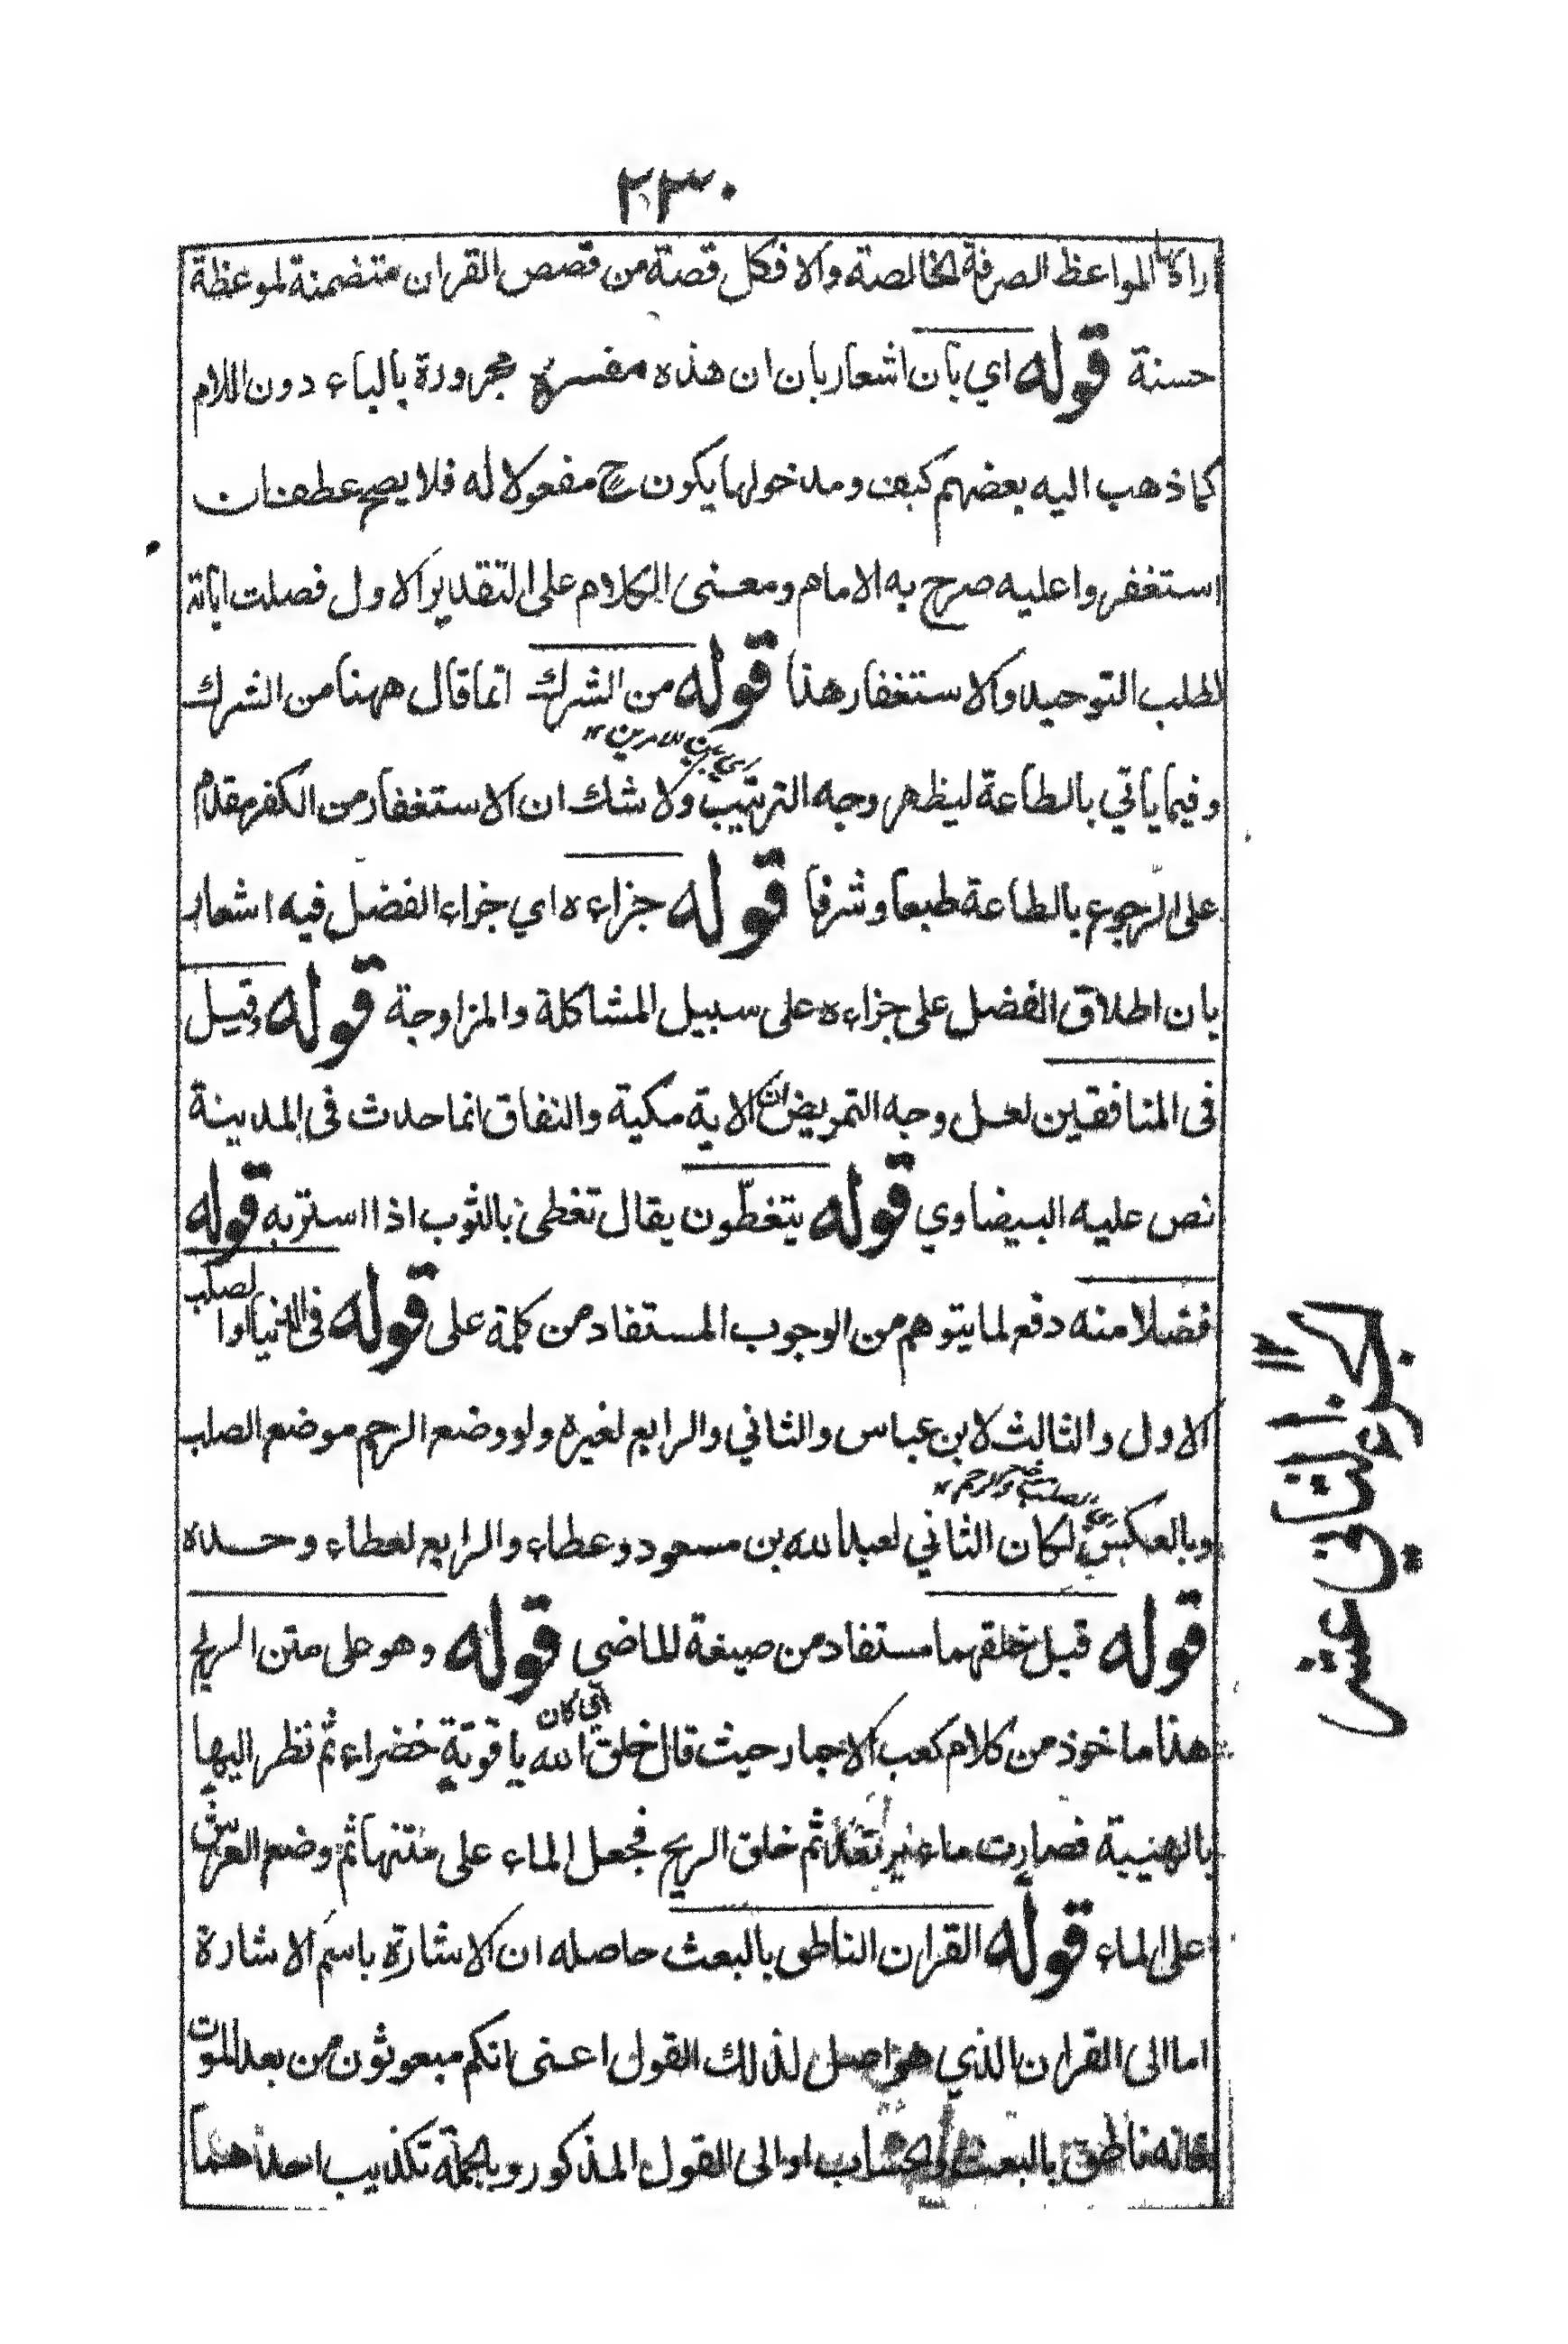 ٢٣٠
اراد بها المواعظ الصرفة الخالصة والا فكل قصة من قصص القران متضمنة لموعظة
حسنة قوله اي بان اشعار بان ان هذه مفسرة مجرورة بالباء دون اللام
كما ذهب اليه بعضهم كيف ومدخولها يكون ح مفعولا له فلا يصح عطف ان
استغفروا عليه صرح به الامام ومعنى الكلام على التقدير الاول فصلت اياته
لطلب التوحيد والاستغفار هذا قوله من الشرك انما قال ههنا من الشرك
اي بين الامرين ١٢
وفيما ياتي بالطاعة ليظهر وجه الترتيب ولا شك ان الاستغفار من الكفر مقدم
على الرجوع بالطاعة طبعا وشرفا قوله جزاءه اي جزاء الفضل فيه اشعار
بان اطلاق الفضل على جزاءه على سبيل المشاكلة والمزاوجة قوله وقيل
فى المنافقين لعل وجه التمريض ان الاية مكية والنفاق انما حدث فى المدينة
نص عليه البيضاوي قوله يتغطّون يقال تغطى بالثوب اذا استتر به قوله
فضلا منه دفع لما يتوهم من الوجوب المستفاد من كلمة على قوله فى الدنيا او الصلب
الاول والثالث لابن عباس والثاني والرابع لغيره ولو وضع الرحم موضع الصلب
اي الصلب موضع الرحم ١٢
وبالعكس لكان الثاني لعبد الله بن مسعود وعطاء والرابع لعطاء وحده
قوله قبل خلقهما مستفاد من صيغة الماضي قوله وهو على متن الريح
اي كان
هذا ماخوذ من كلام كعب الاحبار حيث قال خلق الله ياقوتة خضراء ثم نظر اليها
بالهيبة فصارت ماء يرتعد ثم خلق الريح فجعل الماء على متنها ثم وضع العرش
على الماء قوله القران الناطق بالبعث حاصله ان الاشارة باسم الاشارة
اما الى القران الذي هو اصل لذلك القول اعنى انكم مبعوثون من بعد الموت
فانه ناطق بالبعث والحساب او الى القول المذكور وبالجملة تكذيب احدهما
الجزء الثاني عشر ١٢